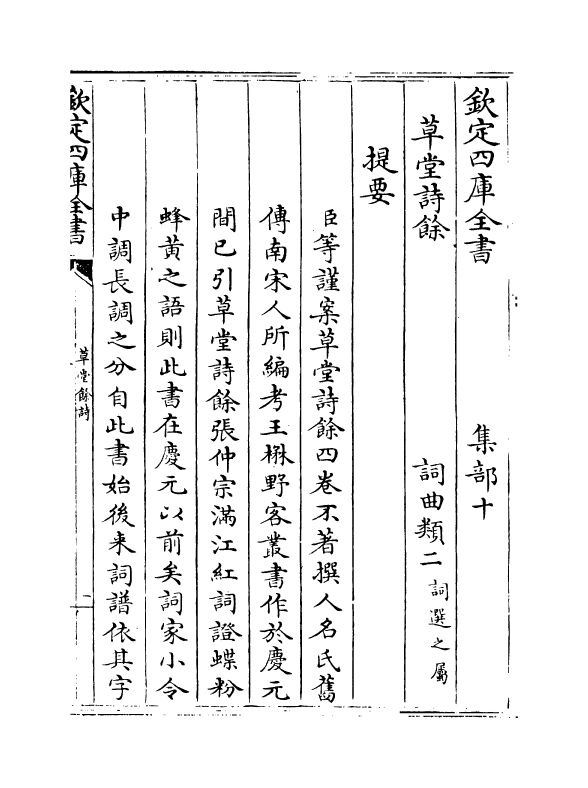 欽定四庫全書 集部十
草堂詩餘 詞曲類二 詞選之屬
提要
臣等謹案草堂詩餘四卷不著撰人名氏舊
傳南宋人所編考王楙野客叢書作於慶元
間已引草堂詩餘張仲宗滿江紅詞證蝶粉
蜂黃之語則此書在慶元以前矣詞家小令
中調長調之分自此書始後来詞譜依其字
欽定四庫全書
草堂餘詩